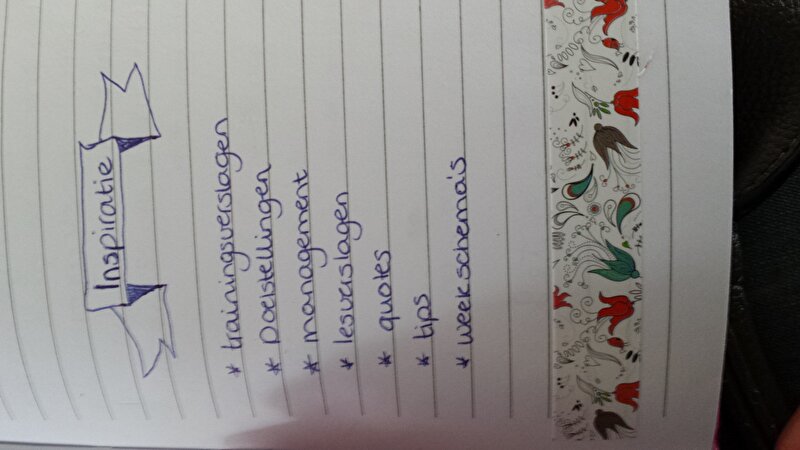 Inspiratie
* trainingsverslagen
* Doelstellingen
* management
* lesverslagen
* quotes
* tips
* weekschema's